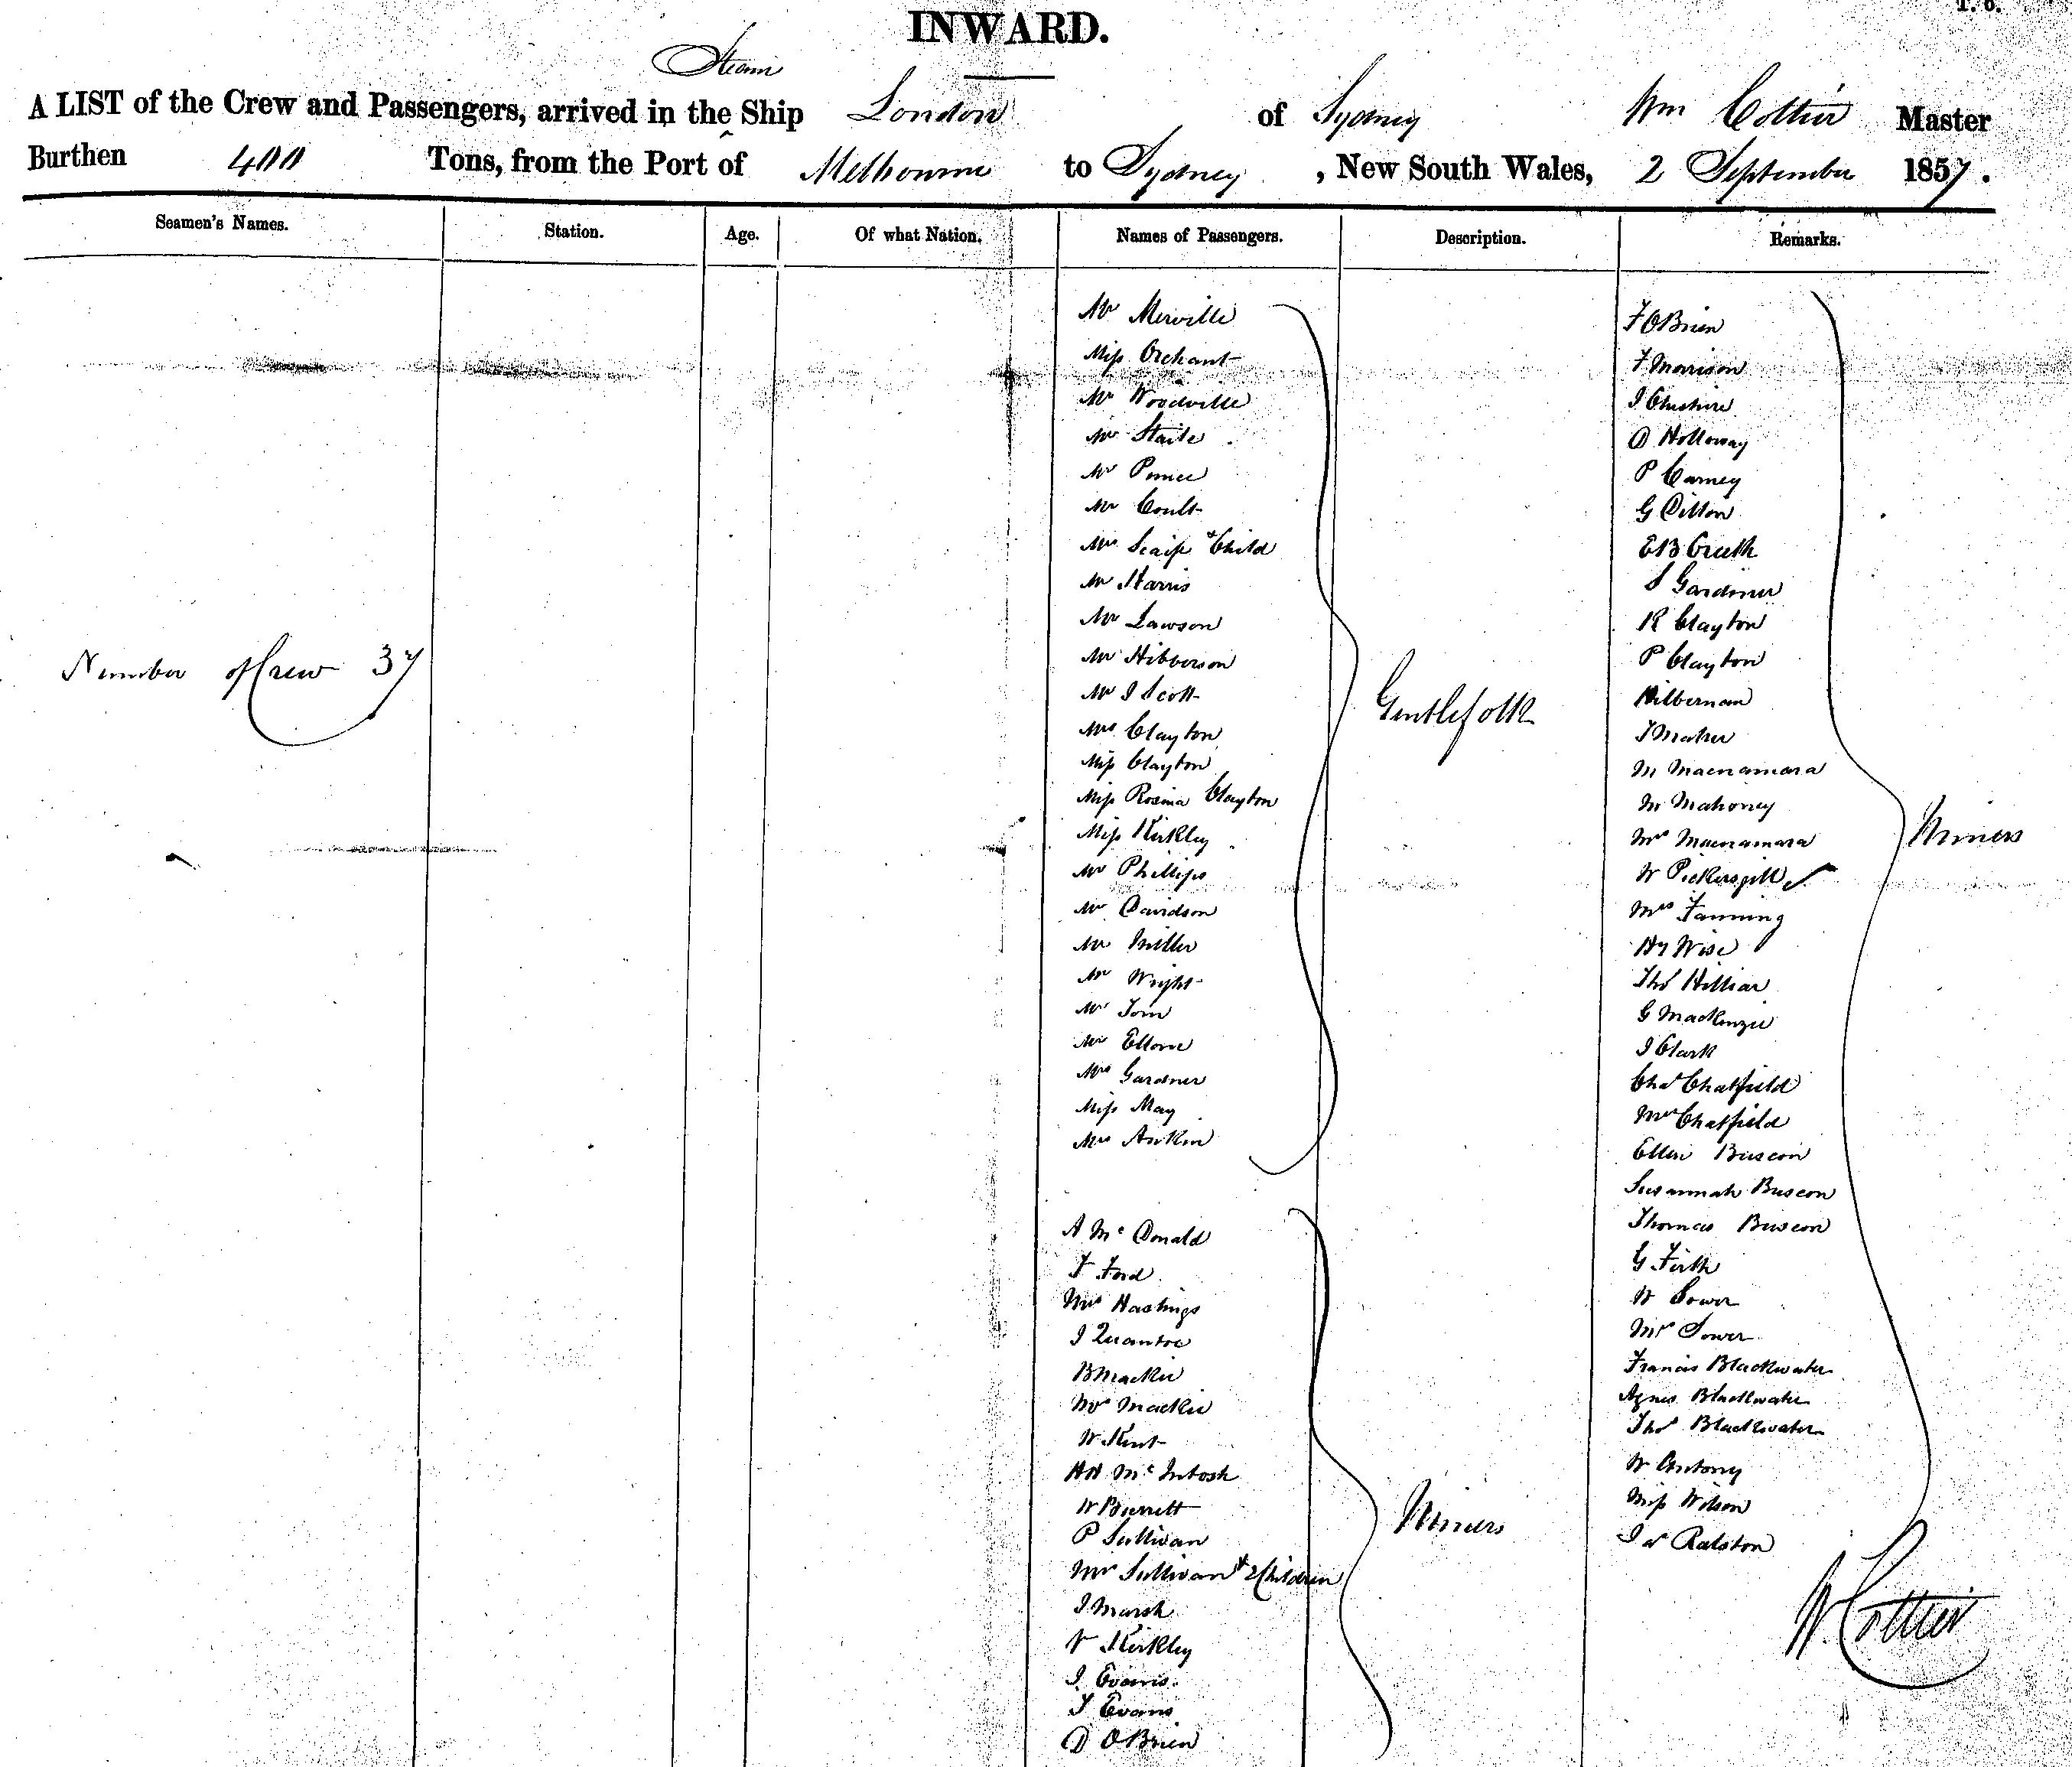 T. 6.
INWARD.
Steam
A LIST of the Crew and Passengers, arrived in the ^ Ship London of Sydney Wm Cottier Master
Burthen 400 Tons, from the Port of Melbourne to Sydney, New South Wales, 2 September 1857.
Seamen's Names. Station. Age. Of what Nation. Names of Passengers. Description. Remarks.
Number of Crew 37
Mr Merville
Miss Orchant
Mr Woodville
Mr Staite
Mr Prince
Mr Coult
Mrs Scaife & Child
Mr Harris
Mr Lawson
Mr Hibberson
Mr J Scott
Mrs Clayton
Miss Clayton
Miss Rosina Clayton
Miss Kirkley
Mr Phillips
Mr Davidson
Mr Miller
Mr Wright
Mr Torn
Mr Ellone
Mrs Gardner
Miss May
Mrs Aitkin
Gentlefolk
A McDonald
F Ford
Mrs Hastings
J Quantoe
B Mackie
Mrs Mackie
W Kent
HH McIntosh
W Burrett
P Sullivan
Mrs Sullivan & 2 Children
J Marsh
W Kirkley
J Evans
T Evans
D O'Brien
Miners
F O'Brien
F Morrison
J Cheshire
D Holloway
P Carney
G Dillon
EB Creeth
S Gardiner
R Clayton
P Clayton
Hilbernan
J Maher
M Macnamara
M Mahoney
Mrs Macnamara
W Pickersgill
Mrs Fanning
Hy Wise
Thos Hilliar
G Mackenzie
J Clark
Chas Chatfield
Mrs Chatfield
Ellen Buscon
Susannah Buscon
Thomas Buscon
G Firth
W Sower
Mrs Sower
Francis Blackwater
Agnes Blackwater
Thos Blackwater
W Antony
Miss Wilson
J W Ralston
Miners
W. Cottier